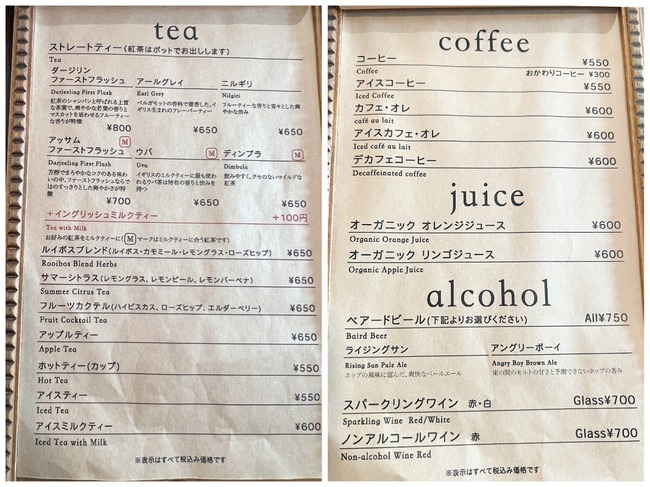 tea
ストレートティー(紅茶はポットでお出しします)
Tea
ダージリン
ファーストフラッシュ
Darjeeling First Flush
紅茶のシャンパンと呼ばれる上質
な茶葉で、爽やかな若葉の香りと
マスカットを思わせるフルーティー
な香りが特徴
¥800
アールグレイ
Earl Grey
ベルガモットの香料で着香した、イ
ギリス生まれのフレーバーティー
¥650
ニルギリ
Nilgiri
フルーティーな香りと青々とした爽
やかな渋み
¥650
アッサム M
ファーストフラッシュ
Darjeeling First Flush
芳醇でまろやかなコクのある味わ
いの中、ファーストフラッシュなら
ではのすっきりとした爽やかさが特
徴
¥700
ウバ M
Uva
イギリスのミルクティーに最も使わ
れるウバ茶は特有の香りと渋みを
持つ
¥650
ディンブラ M
Dimbula
飲みやすく、クセのないマイルドな
紅茶
¥650
+イングリッシュミルクティー +100円
Tea with Milk
お好みの紅茶をミルクティーに(Mマークはミルクティーに合う紅茶です)
ルイボスブレンド(ルイボス・カモミール・レモングラス・ローズヒップ) ¥650
Rooibos Blend Herbs
サマーシトラス(レモングラス、レモンピール、レモンバーベナ) ¥650
Summer Citrus Tea
フルーツカクテル(ハイビスカス、ローズヒップ、エルダーベリー) ¥650
Fruit Cocktail Tea
アップルティー ¥650
Apple Tea
ホットティー(カップ) ¥550
Hot Tea
アイスティー ¥550
Iced Tea
アイスミルクティー ¥600
Iced Tea with Milk
※表示はすべて税込み価格です
coffee
コーヒー ¥550
Coffee おかわりコーヒー ¥300
アイスコーヒー ¥550
Iced Coffee
カフェ・オレ ¥600
café au lait
アイスカフェ・オレ ¥600
Iced café au lait
デカフェコーヒー ¥600
Decaffeinated coffee
juice
オーガニック オレンジジュース ¥600
Organic Orange Juice
オーガニック リンゴジュース ¥600
Organic Apple Juice
alcohol
ベアードビール(下記よりお選びください) All¥750
Baird Beer
ライジングサン
Rising Sun Pale Ale
ホップの風味に富んだ、爽快なペールエール
アングリーボーイ
Angry Boy Brown Ale
束の間のモルトの甘さと予測できないホップの苦み
スパークリングワイン 赤・白 Glass¥700
Sparkling Wine Red/White
ノンアルコールワイン 赤 Glass¥700
Non-alcohol Wine Red
※表示はすべて税込み価格です